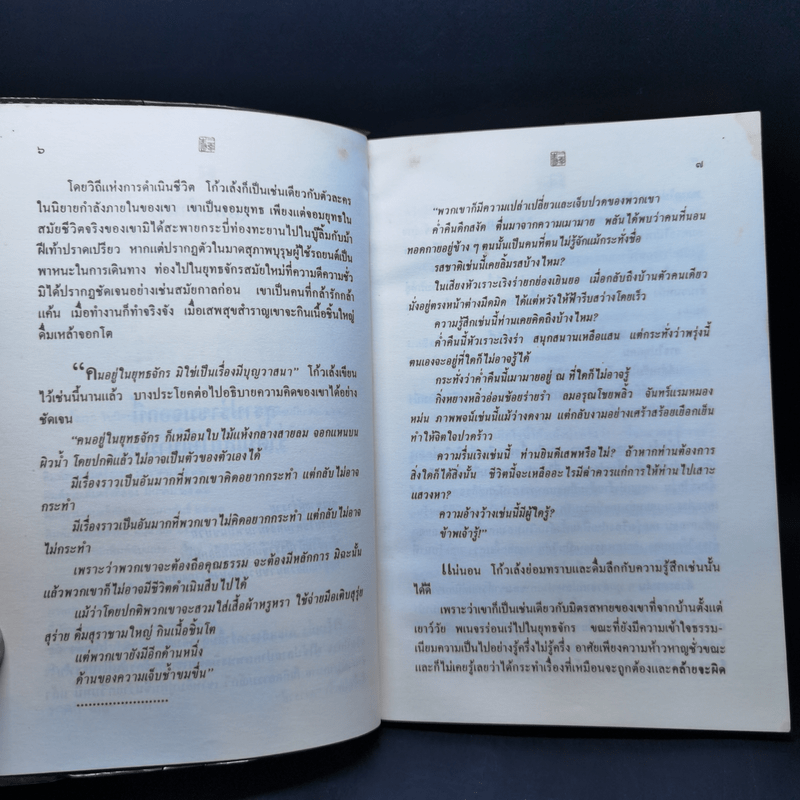 ๖
โดยวิถีแห่งการดำเนินชีวิต โก้วเล้งก็เป็นเช่นเดียวกับตัวละคร
ในนิยายกำลังภายในของเขา เขาเป็นจอมยุทธ เพียงแต่จอมยุทธใน
สมัยชีวิตจริงของเขามิได้สะพายกระบี่ท่องทะยานไปในบู๊ลิ้มกับม้า
ฝีเท้าปราดเปรียว หากแต่ปรากฏตัวในมาดสุภาพบุรุษผู้ใช้รถยนต์เป็น
พาหนะในการเดินทาง ท่องไปในยุทธจักรสมัยใหม่ที่ความดีความชั่ว
มิได้ปรากฏชัดเจนอย่างเช่นสมัยกาลก่อน เขาเป็นคนที่กล้ารักกล้า
แค้น เมื่อทำงานก็ทำจริงจัง เมื่อเสพสุขสำราญเขาจะกินเนื้อชิ้นใหญ่
ดื่มเหล้าจอกโต
“คนอยู่ในยุทธจักร มิใช่เป็นเรื่องมีบุญวาสนา” โก้วเล้งเขียน
ไว้เช่นนี้นานแล้ว บางประโยคต่อไปอธิบายความคิดของเขาได้อย่าง
ชัดเจน
“คนอยู่ในยุทธจักร ก็เหมือนใบไม้แห้งกลางสายลม จอกแหนบน
ผิวน้ำ โดยปกติแล้วไม่อาจเป็นตัวของตัวเองได้
มีเรื่องราวเป็นอันมากที่พวกเขาคิดอยากกระทำ แต่กลับไม่อาจ
กระทำ
มีเรื่องราวเป็นอันมากที่พวกเขาไม่คิดอยากกระทำ แต่กลับไม่อาจ
ไม่กระทำ
เพราะว่าพวกเขาจะต้องถือคุณธรรม จะต้องมีหลักการ มิฉะนั้น
แล้วพวกเขาก็ไม่อาจมีชีวิตดำเนินสืบไปได้
แม้ว่าโดยปกติพวกเขาจะสวมใส่เสื้อผ้าหรูหรา ใช้จ่ายมือเติบสุรุ่ย
สุร่าย ดื่มสุราชามใหญ่ กินเนื้อชิ้นโต
แต่พวกเขายังมีอีกด้านหนึ่ง
ด้านของความเจ็บช้ำขมขื่น”
.......................
๗
“พวกเขาก็มีความเปล่าเปลี่ยวและเจ็บปวดของพวกเขา
ค่ำคืนดึกสงัด ตื่นมาจากความเมามาย พลันได้พบว่าคนที่นอน
ทอดกายอยู่ข้าง ๆ ตนนั้นเป็นคนที่ตนไม่รู้จักแม้กระทั่งชื่อ
รสชาติเช่นนี้เคยลิ้มรสบ้างไหม?
ในเสียงหัวเราะเริงร่ายกย่องเยินยอ เมื่อกลับถึงบ้านตัวคนเดียว
นั่งอยู่ตรงหน้าต่างมืดมิด ได้แต่หวังให้ฟ้ารีบสว่างโดยเร็ว
ความรู้สึกเช่นนี้ท่านเคยคิดถึงบ้างไหม?
ค่ำคืนนี้หัวเราะเริงร่า สนุกสนานเหลือแสน แต่กระทั่งพรุ่งนี้
ตนเองจะอยู่ที่ใดก็ไม่อาจรู้ได้
กระทั่งว่าค่ำคืนนี้เมามายอยู่ ณ ที่ใดก็ไม่อาจรู้
กิ่งหยางหลิ่วอ่อนช้อยร่ายรำ ลมอรุณโชยพลิ้ว จันทร์แรมหมอง
หม่น ภาพพจน์เช่นนี้แม้ว่างดงาม แต่กลับงามอย่างเศร้าสร้อยเยือกเย็น
ทำให้จิตใจปวดร้าว
ความรื่นเริงเช่นนี้ ท่านยินดีเสพหรือไม่? ถ้าหากท่านต้องการ
สิ่งใดก็ได้สิ่งนั้น ชีวิตนี้จะเหลืออะไรมีค่าควรแก่การให้ท่านไปเสาะ
แสวงหา?
ความอ้างว้างเช่นนี้มีผู้ใดรู้?
ข้าพเจ้ารู้!”
แน่นอน โก้วเล้งย่อมทราบและดื่มลึกกับความรู้สึกเช่นนั้น
ได้ดี
เพราะว่าเขาก็เป็นเช่นเดียวกับมิตรสหายของเขาที่จากบ้านตั้งแต่
เยาว์วัย พเนจรร่อนเร่ไปในยุทธจักร ขณะที่ยังมีความเข้าใจธรรม-
เนียมความเป็นไปอย่างรู้ครึ่งไม่รู้ครึ่ง อาศัยเพียงความห้าวหาญชั่วขณะ
และก็ไม่เคยรู้เลยว่าได้กระทำเรื่องที่เหมือนจะถูกต้องและคล้ายจะผิด